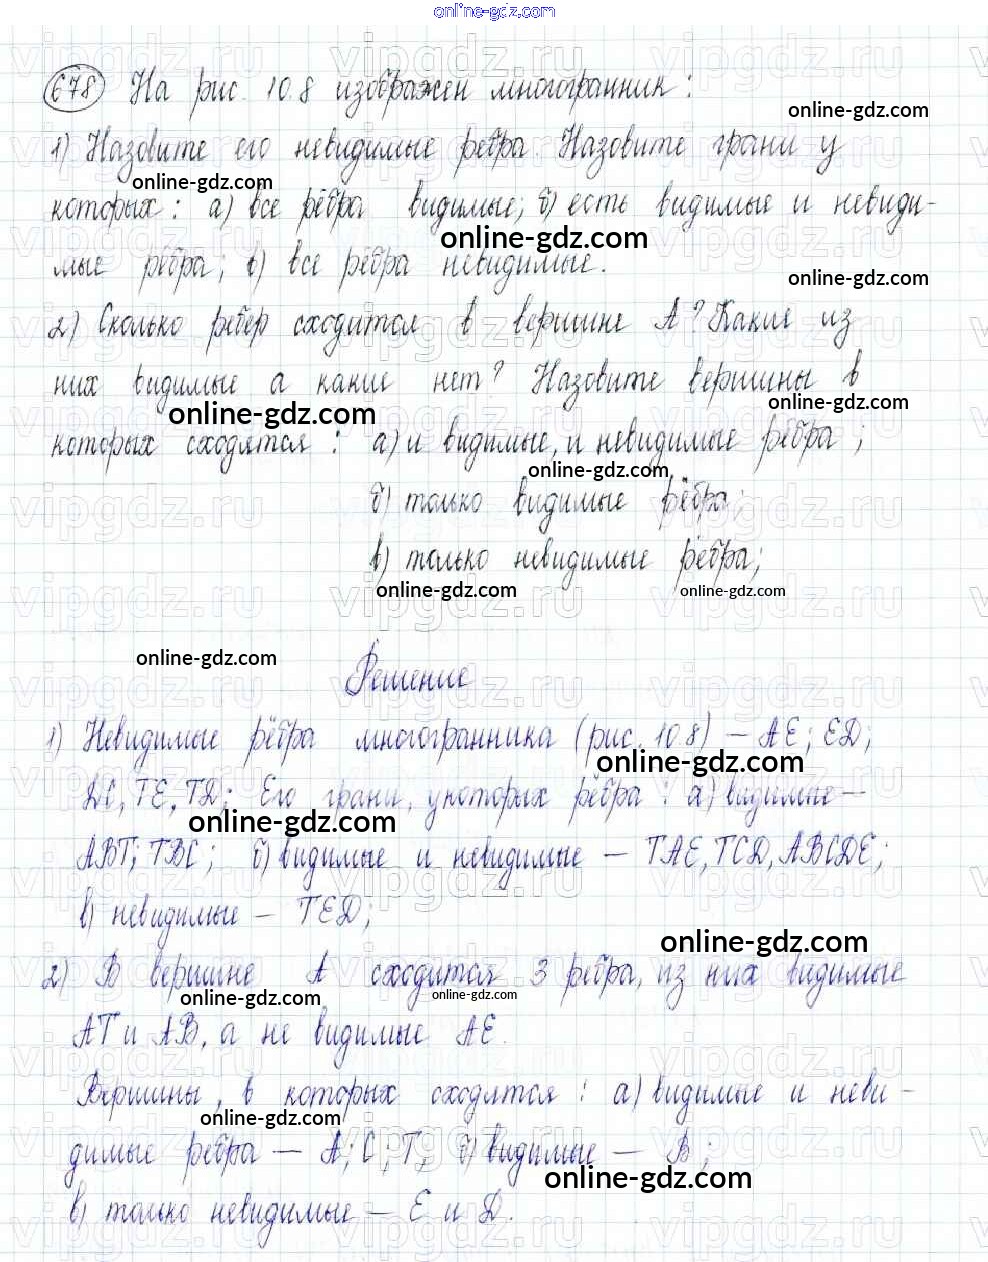 online-gdz.com
678 На рис. 10.8 изображен многогранник:
online-gdz.com
1) Назовите его невидимые ребра. Назовите грани у
online-gdz.com
которых: а) все рёбра видимые; б) есть видимые и невиди-
online-gdz.com
мые рёбра; в) все рёбра невидимые.
online-gdz.com
2) Сколько ребер сходится в вершине А? Какие из
них видимые а какие нет? Назовите вершины в
online-gdz.com online-gdz.com
которых сходятся: а) и видимые, и невидимые рёбра;
online-gdz.com
б) только видимые рёбра;
в) только невидимые рёбра;
online-gdz.com online-gdz.com
online-gdz.com
Решение
1) Невидимые рёбра многогранника (рис. 10.8) – АЕ; ЕД;
online-gdz.com
ДС, ТЕ, ТД; Его грани, у которых рёбра: а) видимые –
online-gdz.com
АВТ; ТВС; б) видимые и невидимые – ТАЕ, ТСД, АВСДЕ;
в) невидимые – ТЕД;
online-gdz.com
2) В вершине А сходится 3 ребра, из них видимые
online-gdz.com online-gdz.com
АТ и АВ, а не видимые АЕ.
Вершины, в которых сходятся: а) видимые и неви-
online-gdz.com
димые ребра – А; С; Т, б) видимые – В;
online-gdz.com
в) только невидимые – Е и Д.